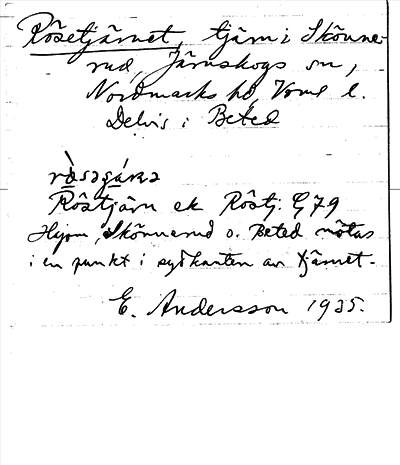 Rösetjärnet, tjärn i Skönne-
rud, Järnskogs sn,
Nordmarks hd, Vrml l.
Delvis i Beted
Röstjärn ek Röstj. G 79
Skönnerud o. Beted mötas
i en punkt i sydkanten av tjärnet.
E. Andersson 1935.